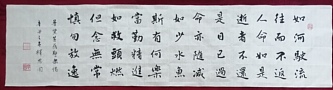 如河駛流
往而不返
人命如是
逝者不還
是日已過
命亦隨減
如少水魚
斯有何樂
當勤精進
如救頭燃
但念無常
慎勿放逸